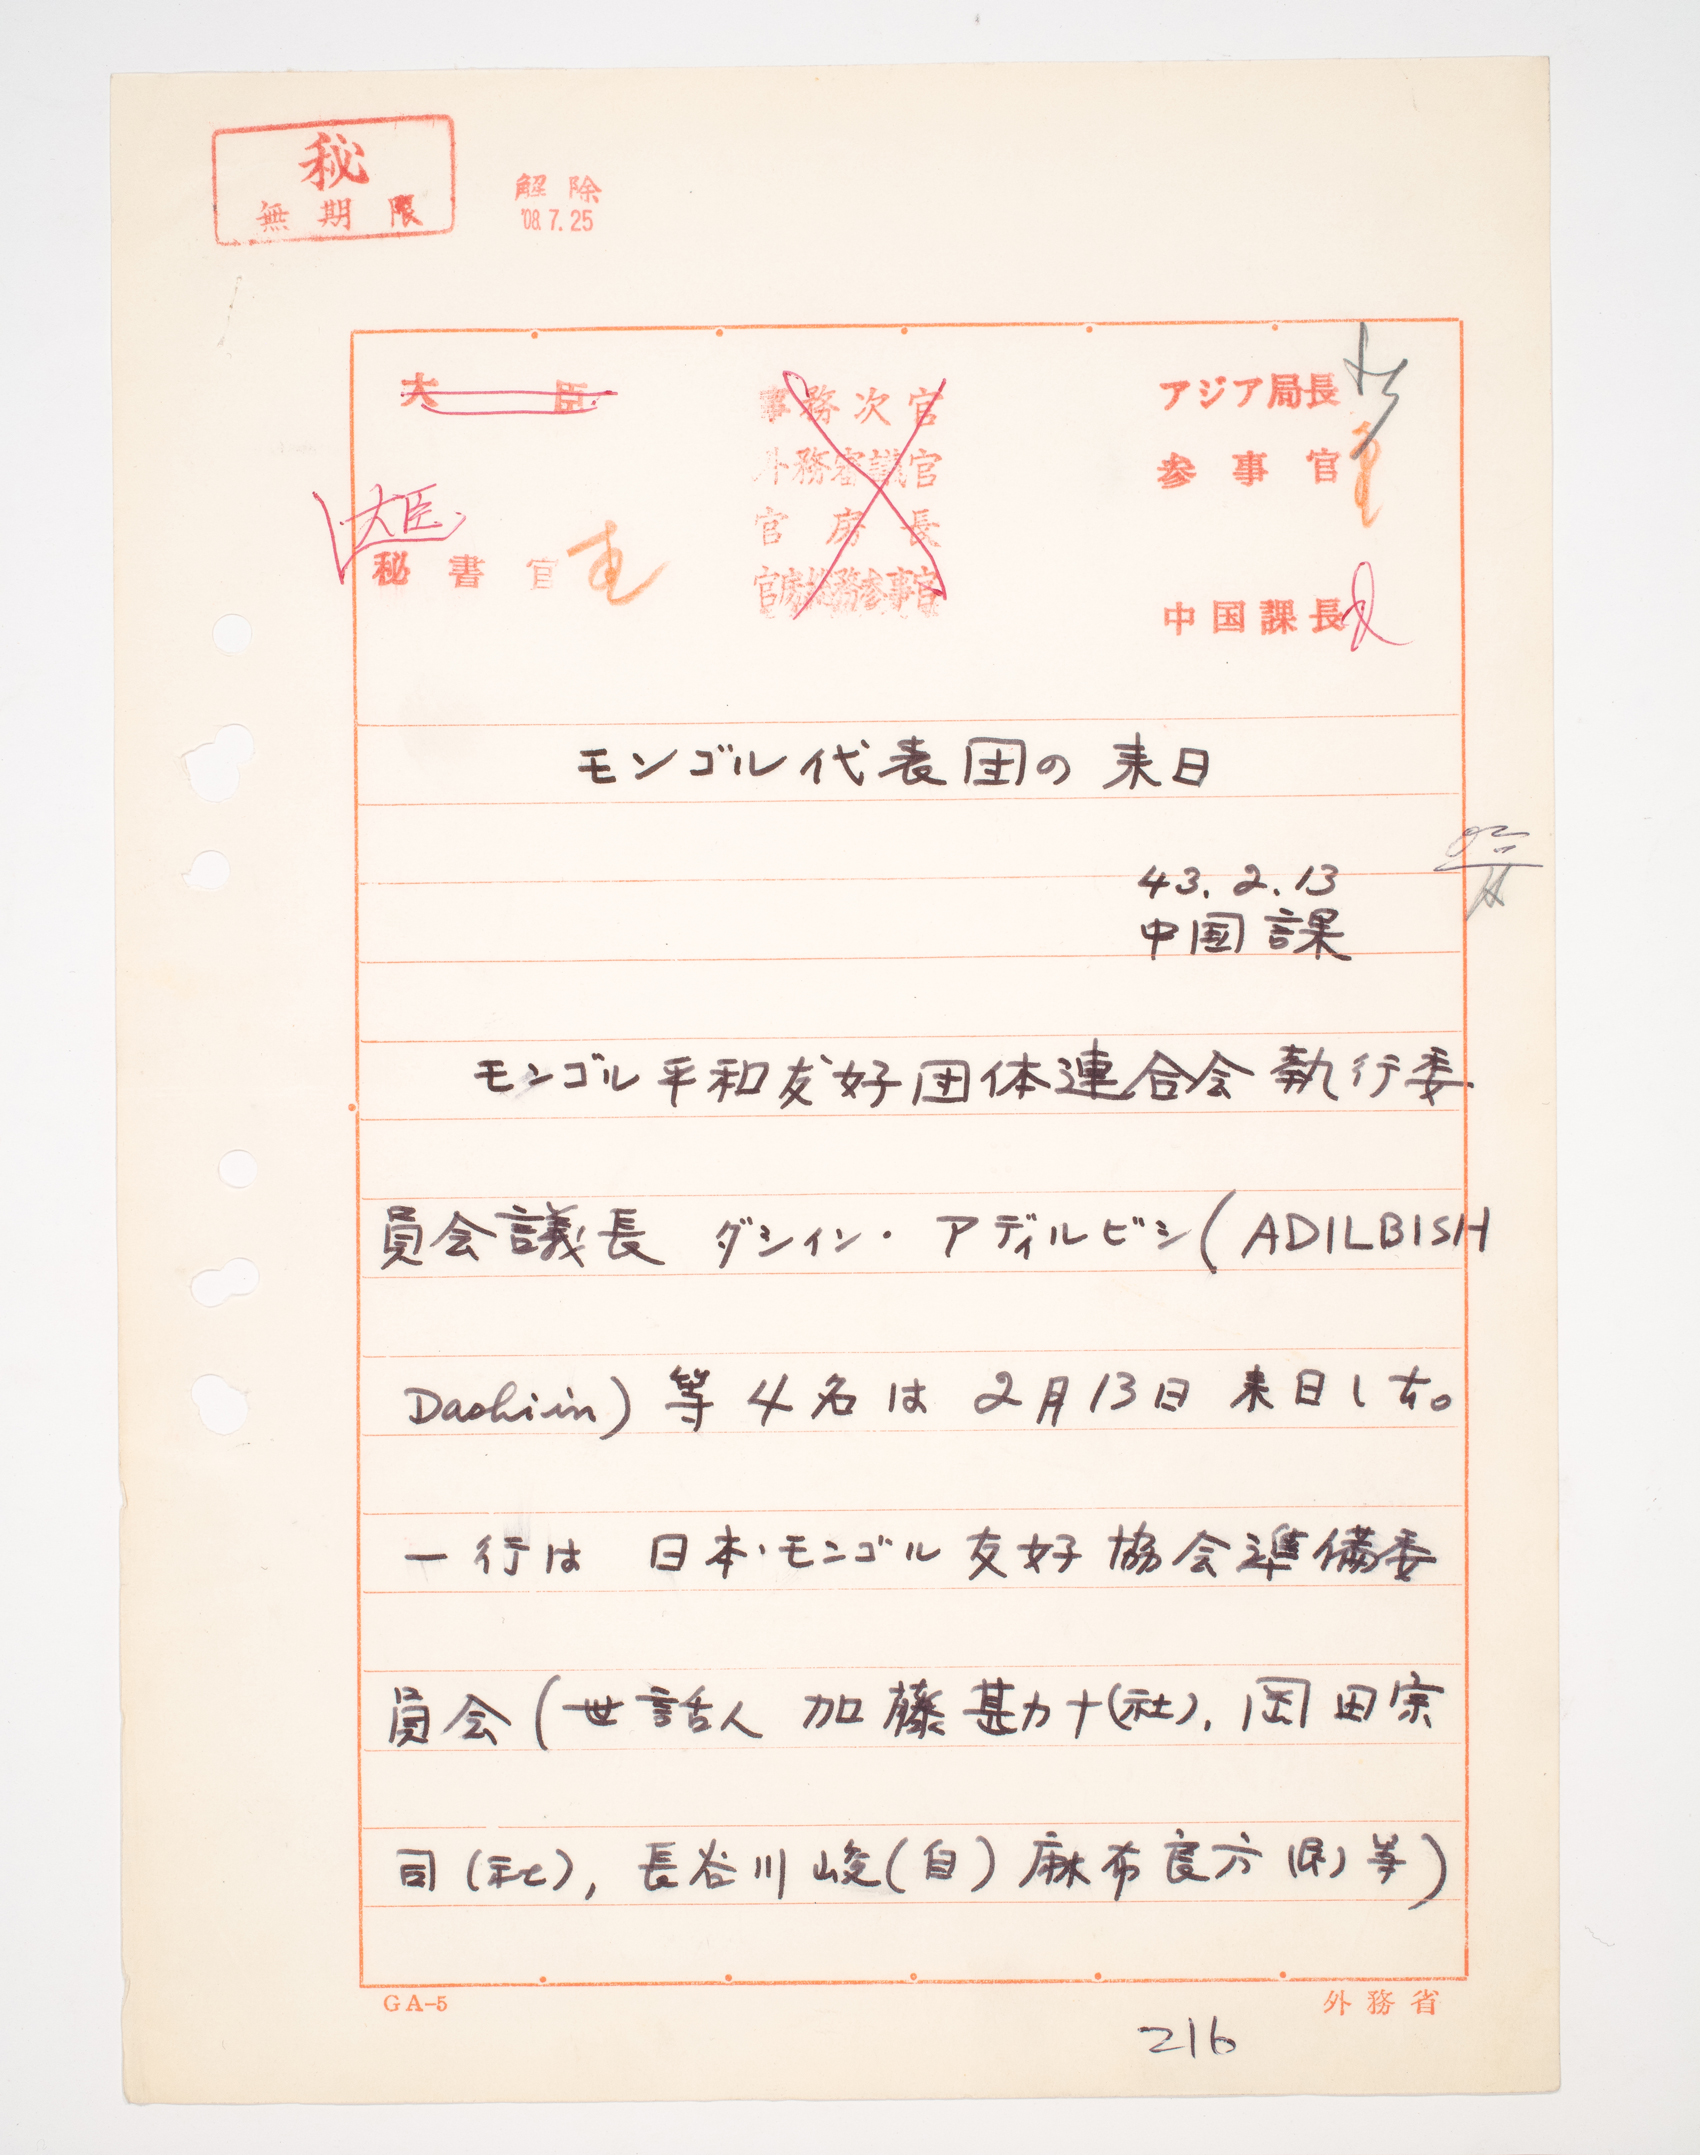 秘
無期限
解除
'08.7.25
大臣
事務次官
アジア局長
外務審議官
参事官
大臣
官房長
秘書官
官房総務参事官
中国課長
モンゴル代表団の来日
43.2.13
中国課
モンゴル平和友好団体連合会執行委
員会議長 ダシィン・アディルビシ(ADILBISH
Dashiin)等4名は2月13日来日した。
一行は 日本・モンゴル友好協会準備委
員会(世話人 加藤甚カナ(社), 岡田宗
司(社), 長谷川峻(自) 麻布良方(民)等)
GA-5
外務省
216